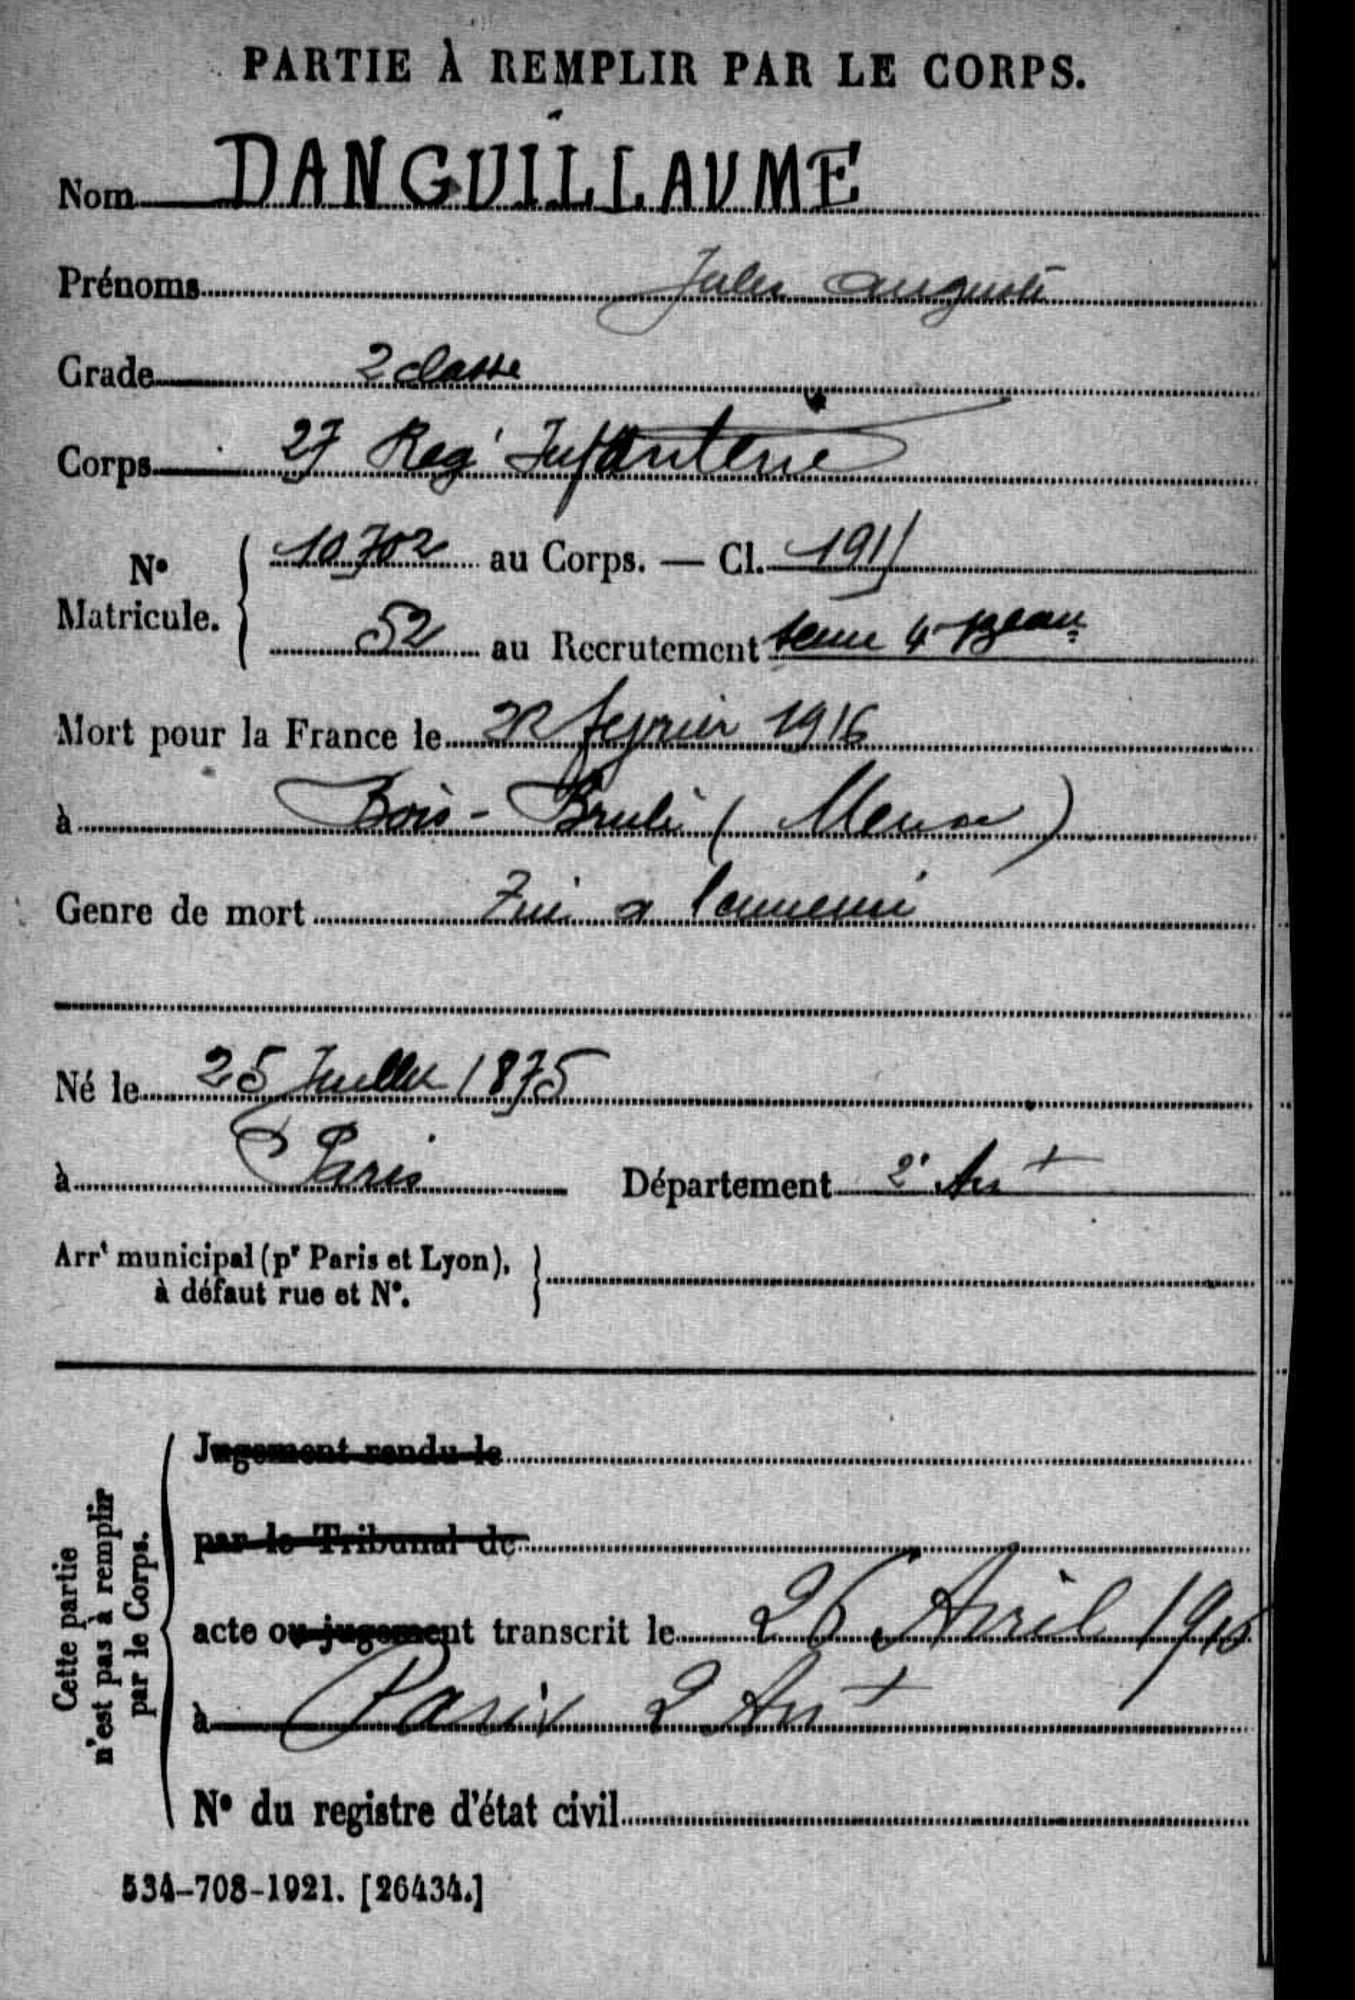 PARTIE À REMPLIR PAR LE CORPS.
Nom DANGUILLAUME
Prénoms Jules Auguste
Grade 2 classe
Corps 27 Reg^t Infanterie
N° Matricule. { 10702 au Corps. — Cl. 191
52 au Recrutement Seine 4 Beau
Mort pour la France le 22 février 1916
à Bois-Brulé (Meuse)
Genre de mort Tué a l'ennemi
Né le 25 Juillet 1875
à Paris Département 2e Arr^t
Arr^t municipal (p^r Paris et Lyon), à défaut rue et N°.
Cette partie n'est pas à remplir par le Corps.
Jugement rendu le
par le Tribunal de
acte ou jugement transcrit le 26 Avril 1916
à Paris 2 Arr^t
N° du registre d'état civil
534-708-1921. [26434.]